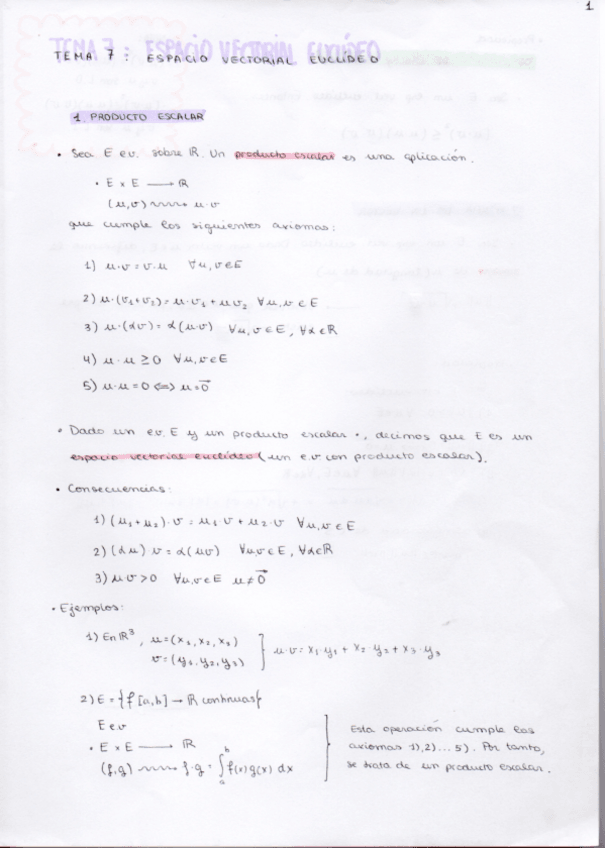 1
TEMA 7: ESPACIO VECTORIAL EUCLÍDEO
TEMA 7: ESPACIO VECTORIAL EUCLÍDEO
1. PRODUCTO ESCALAR
• Sea E e.v. sobre ℝ. Un producto escalar es una aplicación.
• E x E → ℝ
(u,v) ⇝ u·v
que cumple los siguientes axiomas:
1) u·v = v·u ∀u,v∈E
2) u·(v₁+v₂)= u·v₁ + u v₂ ∀u,v∈E
3) u·(αv) = α(u·v) ∀u,v∈E, ∀α∈ℝ
4) u·u ≥ 0 ∀u,v∈E
5) u·u = 0 ⟺ u=0⃗
• Dado un e.v. E y un producto escalar •, decimos que E es un
espacio vectorial euclídeo (un e.v con producto escalar).
• Consecuencias:
1) (u₁+u₂)·v = u₁·v + u₂·v ∀u,v∈E
2) (αu) v = α(uv) ∀u,v∈E, ∀α∈ℝ
3) u·v > 0 ∀u,v∈E u≠0⃗
• Ejemplos:
1) En ℝ³, u=(x₁,x₂,x₃)
v=(y₁,y₂,y₃)
u·v = x₁·y₁ + x₂·y₂ + x₃·y₃
2) E = {f [a,b] → ℝ continuas}
E e.v
• E x E → ℝ
(f,g) ⇝ f·g = ∫ₐᵇ f(x)g(x) dx
Esta operación cumple los
axiomas 1),2)...5). Por tanto,
se trata de un producto escalar.